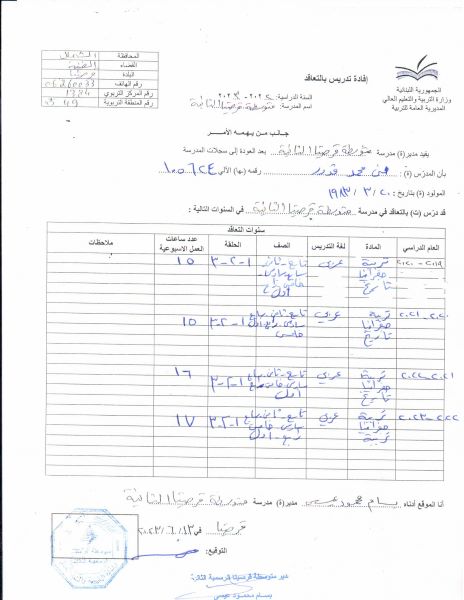 الجمهورية اللبنانية
وزارة التربية والتعليم العالي
المديرية العامة للتربية
إفادة تدريس بالتعاقد
السنة الدراسية: ٢٠٢٢-٢٠٢٣
اسم المدرسة: متوسطة قرصيتا الثانية
المحافظة الشمال
القضاء الضنية
البلدة قرصيتا
رقم الهاتف 06260033
رقم المركز التربوي 1384
رقم المنطقة التربوية
جانب من يهمه الأمر
يفيد مدير(ة) مدرسة متوسطة قرصيتا الثانية بعد العودة إلى سجلات المدرسة
بأن المدرّس (ة): منى محمد قدور رقمه (ها) الآلي ١٠٥٦٢٤
المولود (ة) بتاريخ: ٢٠/٣/١٩٨٣
قد درّس (ت) بالتعاقد في مدرسة متوسطة قرصيتا الثانية في السنوات التالية:
سنوات التعاقد
العام الدراسي المادة لغة التدريس الصف الحلقة عدد ساعات العمل الاسبوعية ملاحظات
٢٠١٩-٢٠٢٠ تربية عربي تاسع-ثامن ١-٢-٣ ١٥
جغرافيا سابع-سادس
تاريخ خامس-رابع
أول
٢٠٢٠-٢٠٢١ تربية عربي تاسع-ثامن-سابع ١-٢-٣ ١٥
جغرافيا سادس-رابع-أول
تاريخ خامس
٢٠٢١-٢٠٢٢ تربية عربي تاسع-ثامن-سابع ١-٢-٣ ١٦
جغرافيا سادس-خامس-رابع
تاريخ أول
٢٠٢٢-٢٠٢٣ تربية عربي تاسع-ثامن-سابع ١-٢-٣ ١٧
جغرافيا سادس-خامس
تربية رابع-أول
أنا الموقع أدناه بسام محمود عيسى مدير(ة) مدرسة متوسطة قرصيتا الثانية
قرصيتا في ١٣/٦/٢٠٢٣
التوقيع:
مدير متوسطة قرصيتا الرسمية الثانية
بسام محمود عيسى